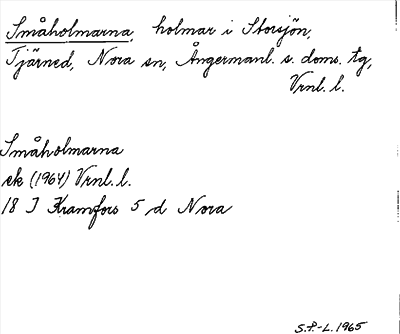 Småholmarna, holmar i Storsjön,
Tjärned, Nora sn, Ångermanl. s. doms. tg,
Vrnl. l.
Småholmarna
ek (1964) Vrnl. l.
18 I Kramfors 5 d Nora
S.P.-L. 1965